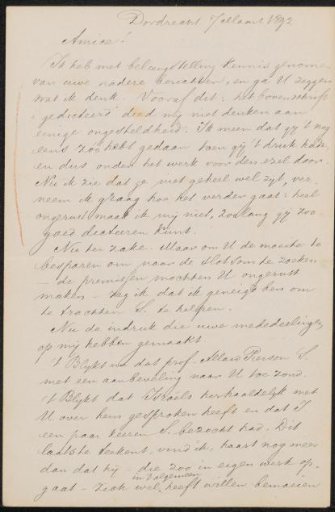 Dordrecht 7 Maart 1892
Amice!
Ik heb met belangstelling kennis genomen
van uwe nadere berichten, en ga U zeggen
wat ik denk. Vooraf dit: het bovenschrift
"gedicteerd" deed mij niet denken aan
eenige ongesteldheid. Ik meen dat gy 't nog
eens zoo hebt gedaan toen gy 't druk hadt
en dus onder het werk voor den ezel door.
Nu ik zie dat je niet geheel wel zyt, ver-
neem ik graag hoe het verder gaat: heel
ongerust maak ik my niet, zoolang gy zoo
goed dicteeren kunt.
Nu ter zake. Maar om U de moeite te
besparen om naar de slotsom te zoeken
— de premissen mochten U ongerust
maken — zeg ik dat ik geneigd ben om
te trachten S. te helpen.
Nu de indruk die uwe mededeelingen
op mij hebben gemaakt
't Blykt nu dat prof. Allard Pierson S.
met een aanbeveling naar U toe zond.
't Blykt dat Israels herhaaldelyk met
U over hem gesproken heeft en dat I
een paar keeren S. bezocht had. Dit
laatste beteekent, vind ik, haast nog meer
dan dat hy — die zoo in eigen werk op-
in 't algemeen
gaat — zich wel heeft willen bemoeien